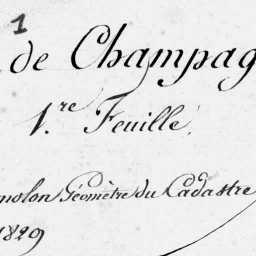 1
de Champag
1.re Feuille.
nolon Géomètre du Cadastre
1829